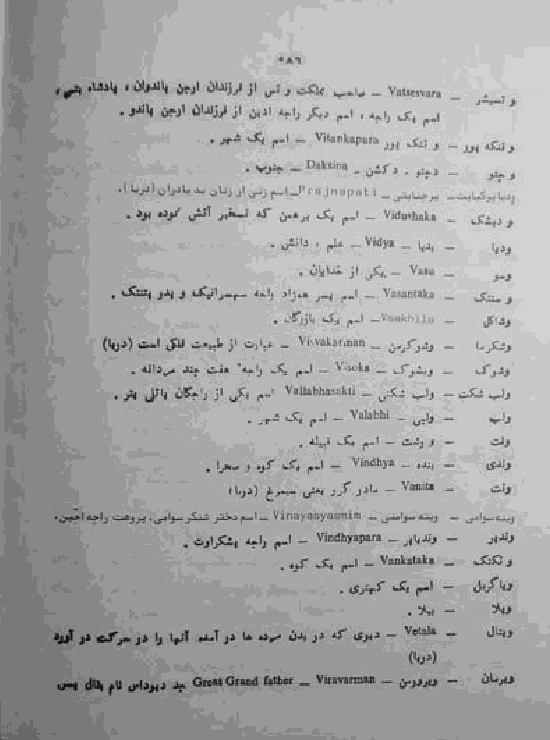 ۵۸۶
و تسیشر – Vatsesvara – صاحب مملکت و تس از فرزندان ارجن پاندوان ، پادشاه
اسم یک راجه ، اسم دیگر راجه ادین از فرزندان ارجن پاندو .
و تنکه پور – و تنک پور Vitankapura – اسم یک شهر .
و چنو – دچنو . دکشن . Daksina – جنوب .
Prajnapati – اسم زنی از زنان (دریا) .
و دیشک – Vidushaka – اسم یک برهمن که تسخیر آتش نموده بود .
ودیا – بدیا – Vidya – علم ، دانش .
وسو – Vasu – یکی از خدایان .
و سنتک – Vasantaka – اسم پسر همزاد راجه و پدر
وشاکل – Vaakhila – اسم یک بازرگان .
وشکرما – وشوکرمن – Visvakarman – عبارت از طبیعت فلکی است (دریا)
وشوک – ویشوک – Visoka – اسم یک راجه هفت چند مردانه .
ولب شکت – ولب شکتی – Vallabhasakti اسم یکی از راجگان پاتلی پتر .
ولب – ولبی – Valabhi – اسم یک شهر .
ولت – و رشت – اسم یک قبیله .
وندی – بنده – Vindhya – اسم یک کوه و صحرا .
ونت – Vanita – مادر گرر یعنی سیمرغ (دریا)
وینه سوامی – وینه سوامنی – Vinayasyasmim – اسم دختر شنکر سوامی، پروهت راجه اجین.
وندپر – وندیاپر – Vindhyapara – اسم راجه پشکراوت .
و نکتک – Vankataka – اسم یک کوه .
ویاگربل – اسم یک کهتری .
ویلا – بیلا .
ویتال – Vetala – دیوی که در بدن مرده ها در آمده آنها را در حرکت در آورد
(دریا)
ویرمان – ویرورمن – Viravarman – Great Grand father جد دیوداس نام بقال پسر